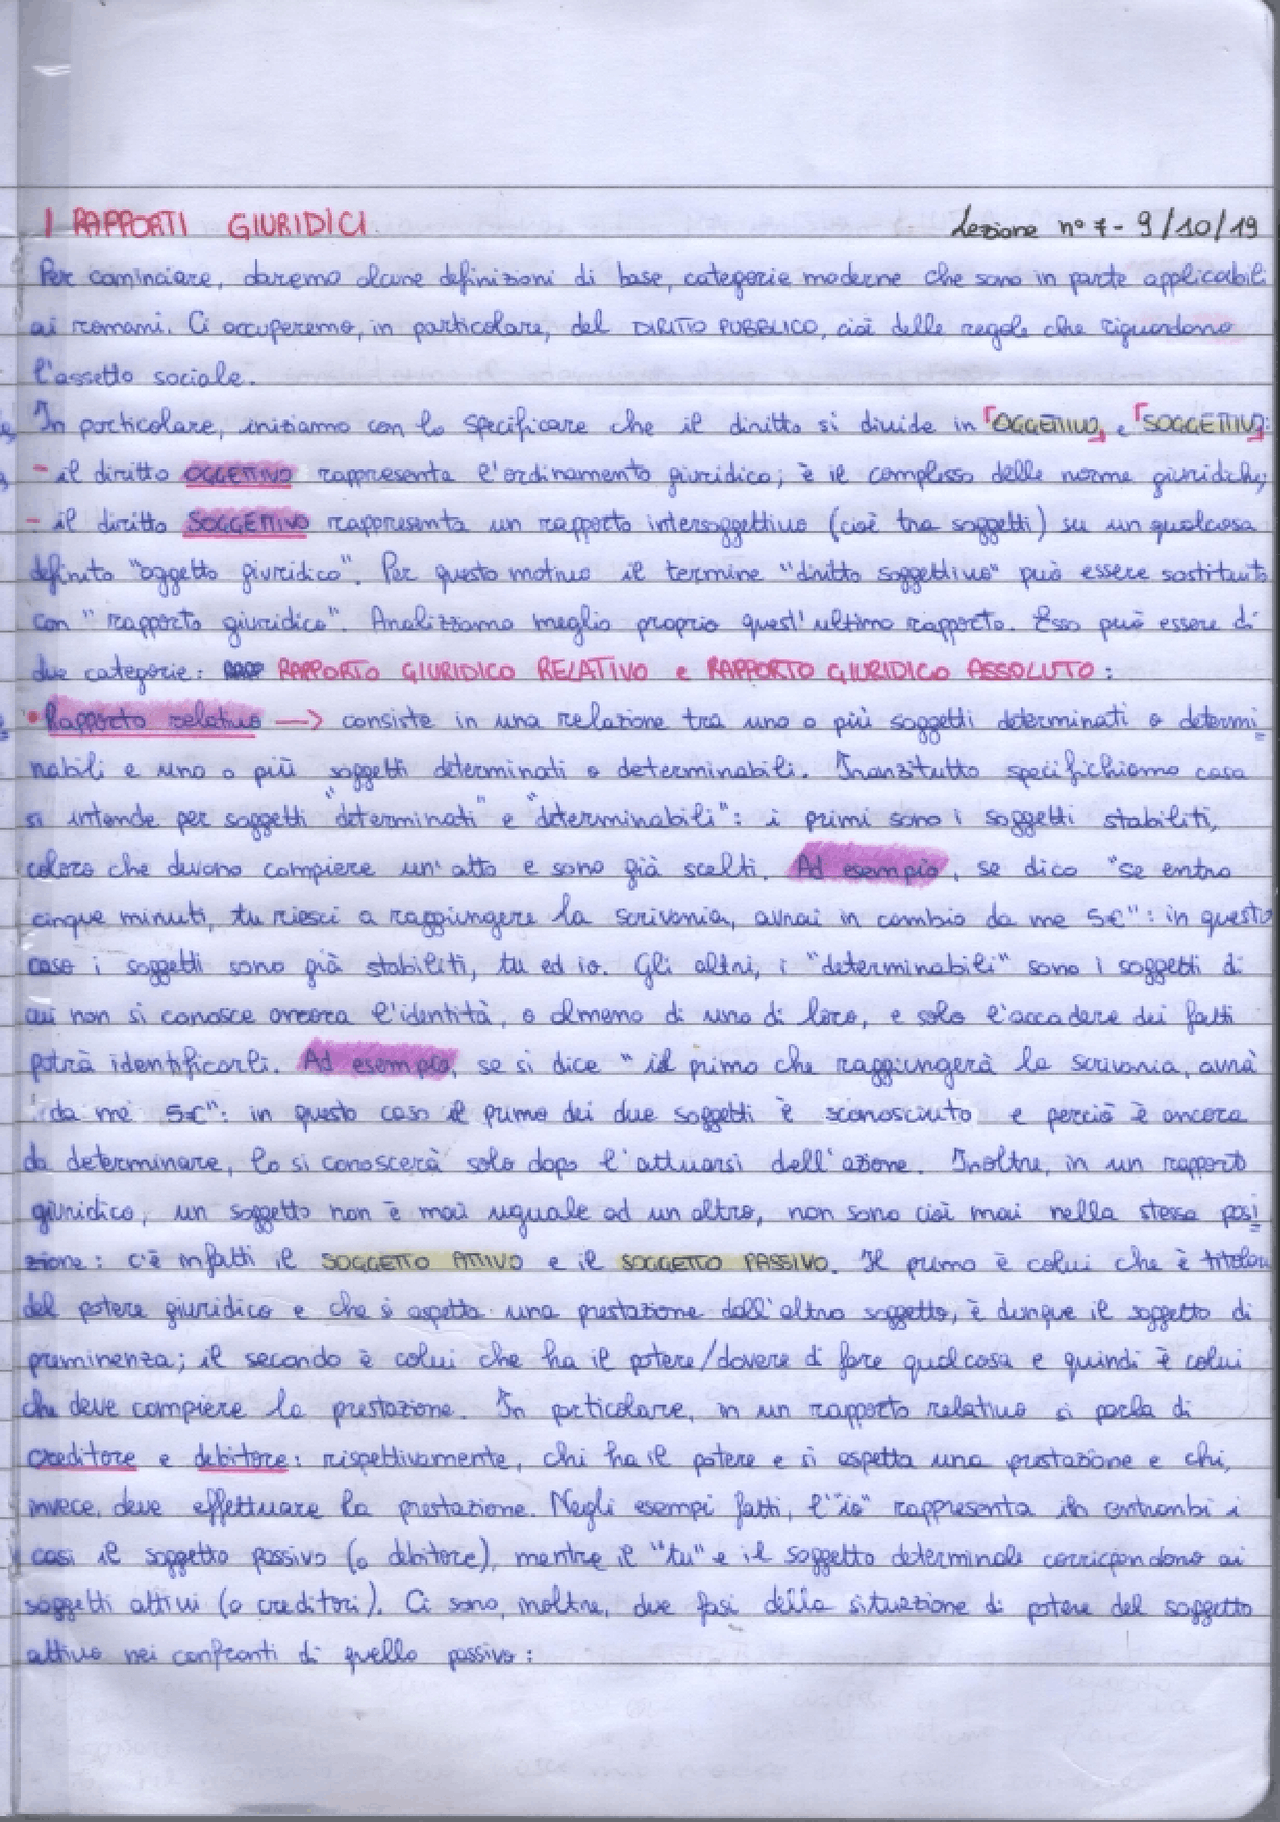 I RAPPORTI GIURIDICI Lezione n° 7 - 9/10/19
Per cominciare, daremo alcune definizioni di base, categorie moderne che sono in parte applicabili
ai romani. Ci occuperemo, in particolare, del DIRITTO PUBBLICO, cioè delle regole che riguardano
l'assetto sociale.
In particolare, iniziamo con lo specificare che il diritto si divide in OGGETTIVO e SOGGETTIVO:
- il diritto OGGETTIVO rappresenta l'ordinamento giuridico; è il complesso delle norme giuridiche;
- il diritto SOGGETTIVO rappresenta un rapporto intersoggettivo (cioè tra soggetti) su un qualcosa
definito "oggetto giuridico". Per questo motivo il termine "diritto soggettivo" può essere sostituito
con "rapporto giuridico". Analizziamo meglio proprio quest'ultimo rapporto. Esso può essere di
due categorie: RAPPORTO GIURIDICO RELATIVO e RAPPORTO GIURIDICO ASSOLUTO:
• Rapporto relativo —> consiste in una relazione tra uno o più soggetti determinati o determi
nabili e uno o più soggetti determinati o determinabili. Innanzitutto specifichiamo cosa
si intende per soggetti "determinati" e "determinabili": i primi sono i soggetti stabiliti,
coloro che devono compiere un'atto e sono già scelti. Ad esempio, se dico "se entro
cinque minuti, tu riesci a raggiungere la scrivania, avrai in cambio da me 5€": in questo
caso i soggetti sono già stabiliti, tu ed io. Gli altri, i "determinabili" sono i soggetti di
cui non si conosce ancora l'identità, o almeno di uno di loro, e solo l'accadere dei fatti
potrà identificarli. Ad esempio, se si dice "il primo che raggiungerà la scrivania, avrà
da me 5€": in questo caso il primo dei due soggetti è sconosciuto e perciò è ancora
da determinare, lo si conoscerà solo dopo l'attuarsi dell'azione. Inoltre, in un rapporto
giuridico, un soggetto non è mai uguale ad un altro, non sono cioè mai nella stessa posi
zione: c'è infatti il SOGGETTO ATTIVO e il SOGGETTO PASSIVO. Il primo è colui che è titolare
del potere giuridico e che si aspetta una prestazione dall'altro soggetto, è dunque il soggetto di
preminenza; il secondo è colui che ha il potere/dovere di fare qualcosa e quindi è colui
che deve compiere la prestazione. In particolare, in un rapporto relativo si parla di
creditore e debitore: rispettivamente, chi ha il potere e si aspetta una prestazione e chi,
invece, deve effettuare la prestazione. Negli esempi fatti, l'"io" rappresenta in entrambi i
casi il soggetto passivo (o debitore), mentre il "tu" e il soggetto determinale corrispondono ai
soggetti attivi (o creditori). Ci sono, inoltre, due fasi della situazione di potere del soggetto
attivo nei confronti di quello passivo: